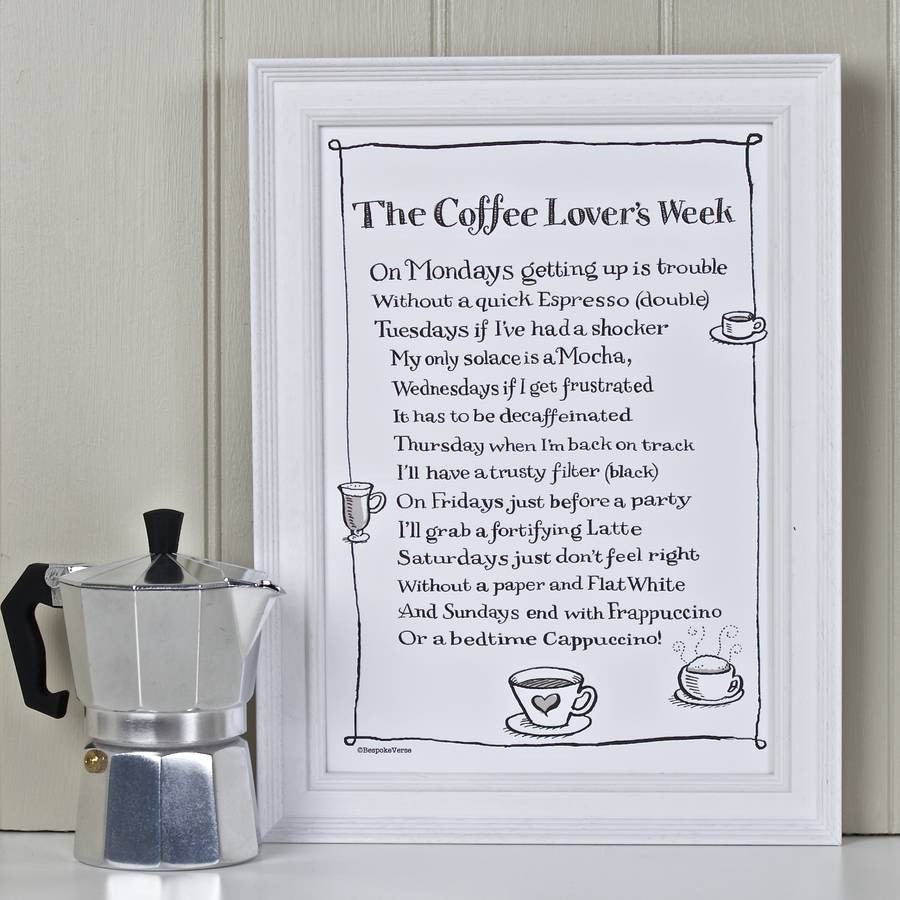 The Coffee Lover's Week
On Mondays getting up is trouble
Without a quick Espresso (double)
Tuesdays if I've had a shocker
My only solace is a Mocha,
Wednesdays if I get frustrated
It has to be decaffeinated
Thursday when I'm back on track
I'll have a trusty filter (black)
On Fridays just before a party
I'll grab a fortifying Latte
Saturdays just don't feel right
Without a paper and Flat White
And Sundays end with Frappuccino
Or a bedtime Cappuccino!
©BespokeVerse